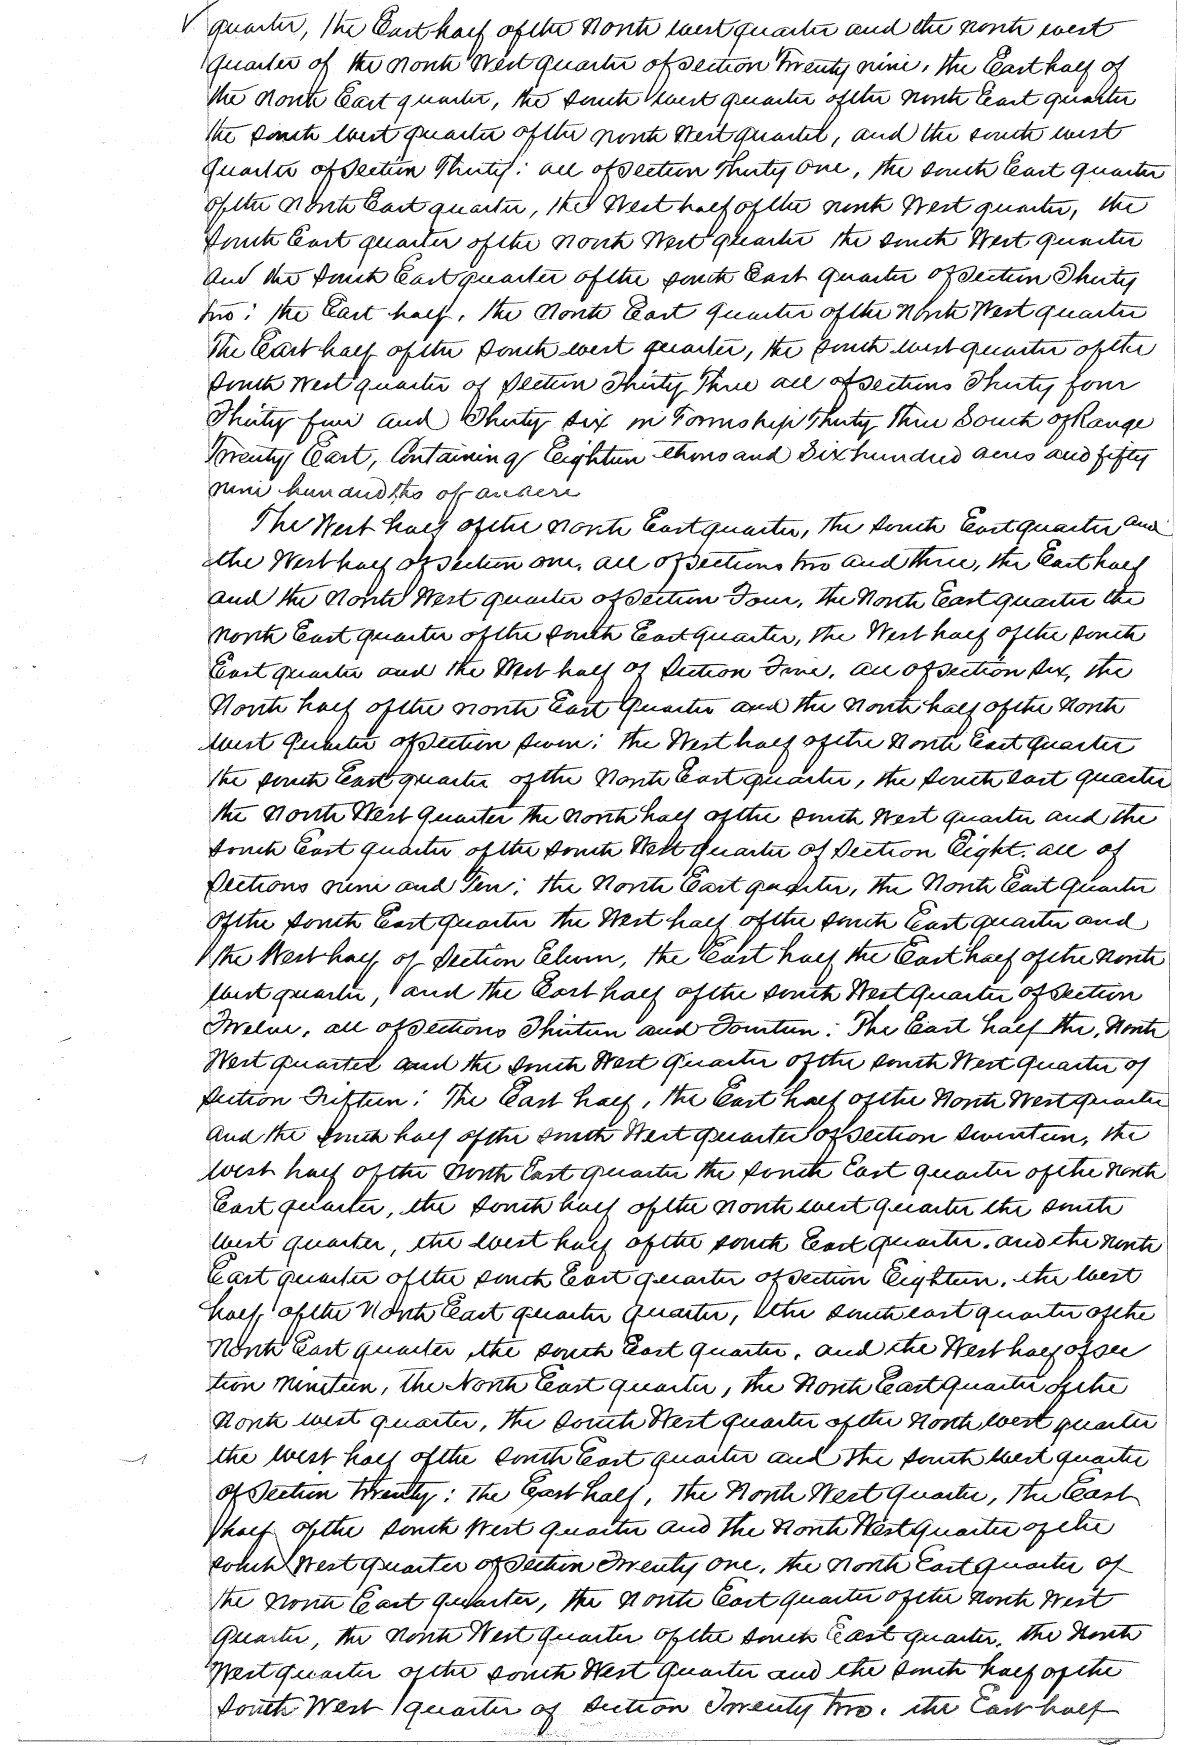 quarter, the East half of the North west quarter and the north west
quarter of the North West quarter of section Twenty nine, the East half of
the North East quarter, the south west quarter of the North East quarter
the south west quarter of the north West quarter, and the south west
quarter of Section Thirty: all of section Thirty one, the south East quarter
of the North East quarter, the West half of the north West quarter, the
south East quarter of the North West quarter the south West quarter
and the South East quarter of the south East quarter of Section Thirty
two: the East half, the North East quarter of the North West quarter
The East half of the South west quarter, the south west quarter of the
South West quarter of Section Thirty Three all of sections Thirty four
Thirty five and Thirty six in Township Thirty Three South of Range
Twenty East, Containing Eighteen thousand Six hundred acres and fifty
nine hundredths of an acre
The West half of the North East quarter, the South East quarter and
the West half of Section one, all of sections two and three, the East half
and the North West quarter of section Four, the North East quarter the
North East quarter of the south East quarter, the West half of the South
East quarter and the West half of Section Five, all of section six, the
North half of the north East quarter and the North half of the North
west quarter of section seven: the West half of the North East quarter
the south East quarter of the North East quarter, the south east quarter
the North West quarter the North half of the south West quarter and the
South East quarter of the south West quarter of Section Eight. all of
Sections nine and Ten; the North East quarter, the North East quarter
of the South East quarter the West half of the south East quarter and
the West half of Section Eleven, the East half the East half of the North
West quarter, and the East half of the south West quarter of Section
Twelve, all of sections Thirteen and Fourteen: The East half the, North
West quarter and the south West quarter of the south West quarter of
Section Fifteen: The East half, the East half of the North West quarter
and the south half of the south West quarter of section seventeen, the
west half of the North East quarter the south East quarter of the North
East quarter, the South half of the North west quarter the south
West quarter, the west half of the south East quarter. and the North
East quarter of the south East quarter of section Eighteen. the west
half, of the North East quarter quarter, the south east quarter of the
North East quarter the south East quarter, and the West half of sec
tion nineteen, the North East quarter, the North East quarter of the
North west quarter, the South West quarter of the North west quarter
the west half of the South East quarter and the south West quarter
of Section Twenty: the East half, the North West quarter, the East
half of the South West quarter and the North West quarter of the
south West quarter of Section Twenty one, the North East quarter of
the North East quarter, the North East quarter of the North West
quarter, the North West quarter of the south East quarter, the North
West quarter of the South West quarter and the south half of the
South West quarter of Section Twenty two. the East half